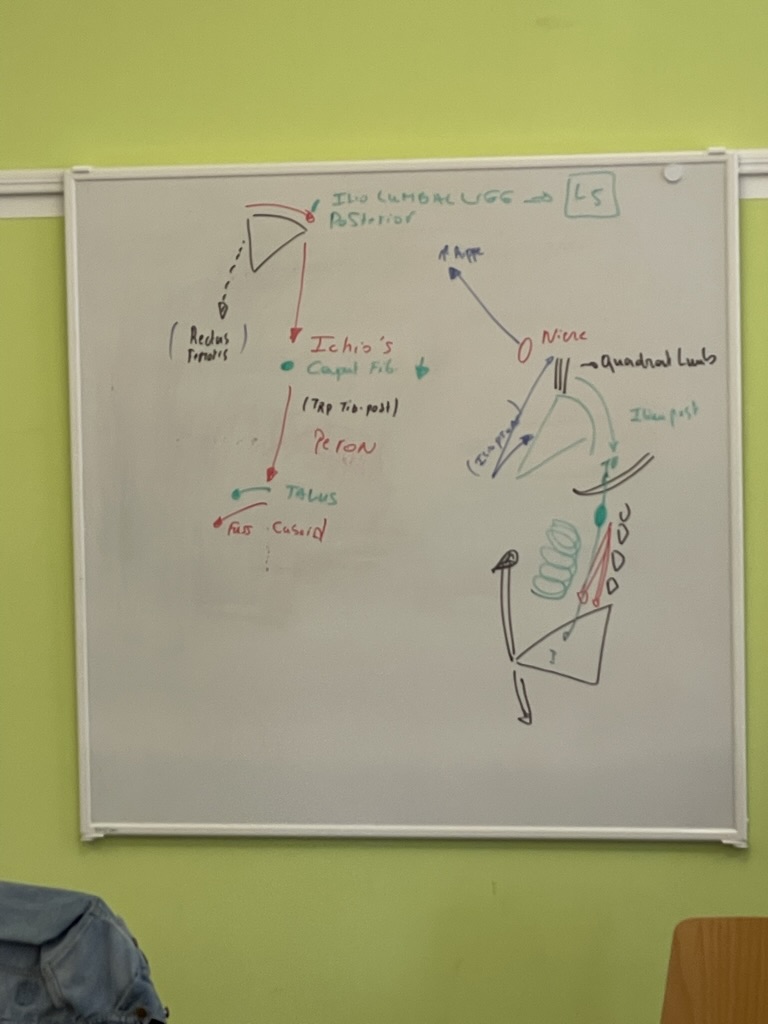 ILIO LUMBAL LIGG → L5
Posterior
(Rectus
Femoris)
Ichio's
Caput Fib.
(TRP Tib. post)
PERON
TALUS
Fuss Cuboid
Niere
→ Quadrat Lumb
Ilium post